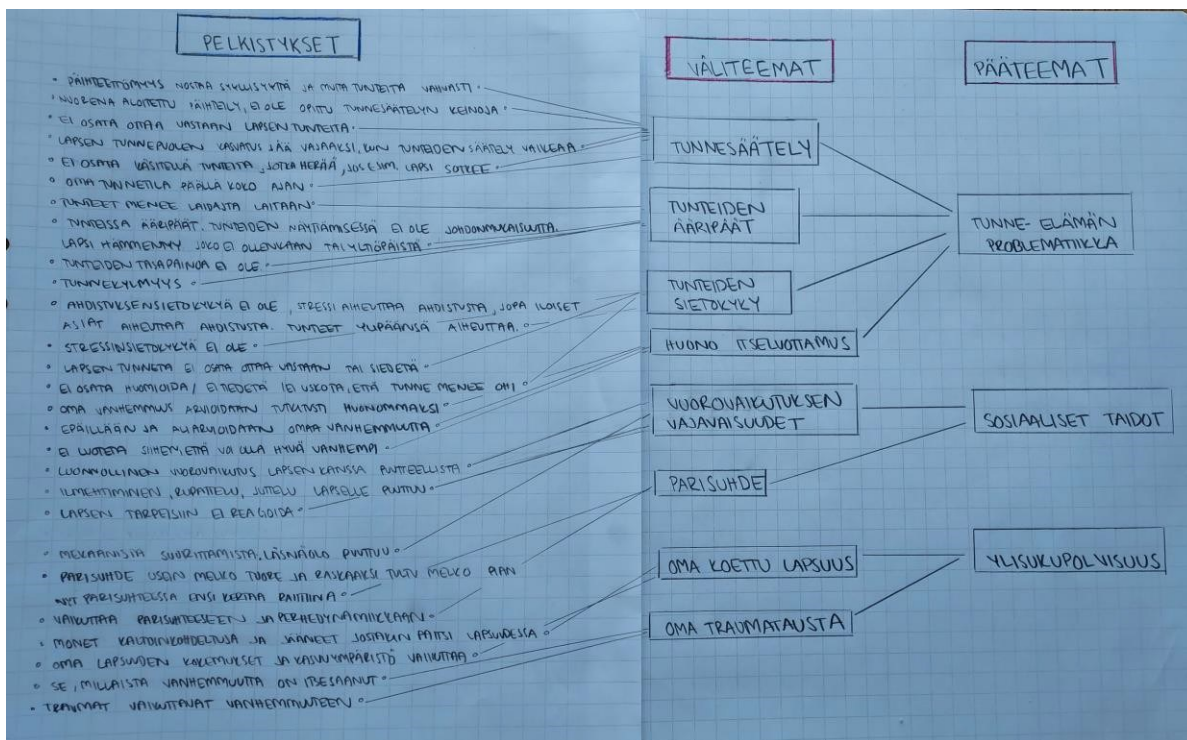 PELKISTYKSET
• PÄIHTEETTÖMYYS NOSTAA SYYLLISYYTTÄ JA MUITA TUNTEITA VAHVASTI
• NUORENA ALOITETTU PÄIHTEILY, EI OLE OPITTU TUNNESÄÄTELYN KEINOJA
• EI OSATA OTTAA VASTAAN LAPSEN TUNTEITA
• LAPSEN TUNNEPUOLEN KASVATUS JÄÄ VAJAAKSI, KUN TUNTEIDEN SÄÄTELY VAIKEAA
• EI OSATA KÄSITELLÄ TUNTEITA, JOTKA HERÄÄ, JOS ESIM. LAPSI SOTKEE
• OMA TUNNETILA PÄÄLLÄ KOKO AJAN
• TUNTEET MENEE LAIDASTA LAITAAN
• TUNTEISSA ÄÄRIPÄÄT. TUNTEIDEN NÄYTTÄMISESSÄ EI OLE JOHDONMUKAISUUTTA.
LAPSI HÄMMENTYY JOKO EI OLLENKAAN TAI YLTIÖPÄISTÄ
• TUNTEIDEN TASAPAINOA EI OLE.
• TUNNEKYLMYYS
• AHDISTUKSENSIETOKYKYÄ EI OLE, STRESSI AIHEUTTAA AHDISTUSTA, JOPA ILOISET
ASIAT AIHEUTTAA AHDISTUSTA. TUNTEET YLIPÄÄNSÄ AIHEUTTAA.
• STRESSINSIETOKYKYÄ EI OLE
• LAPSEN TUNNETTA EI OSATA OTTAA VASTAAN TAI SIEDETÄ
• EI OSATA HUOMIOIDA / EI TIEDETÄ / EI USKOTA, ETTÄ TUNNE MENEE OHI
• OMA VANHEMMUUS ARVIOIDAAN TUTKITUSTI HUONOMMAKSI
• EPÄILLÄÄN JA ALIARVIOIDAAN OMAA VANHEMMUUTTA
• EI LUOTETA SIIHEN, ETTÄ VOI OLLA HYVÄ VANHEMPI
• LUONNOLLINEN VUOROVAIKUTUS LAPSEN KANSSA PUUTTEELLISTA
• ILMEHTIMINEN, RUPATTELU, JUTTELU LAPSELLE PUUTTUU
• LAPSEN TARPEISIIN EI REAGOIDA
• MEKAANISTA SUORITTAMISTA. LÄSNÄOLO PUUTTUU
• PARISUHDE USEIN MELKO TUORE JA RASKAAKSI TULTU MELKO PIAN
NYT PARISUHTEESSA ENSI KERTAA RAITTIINA
• VAIKUTTAA PARISUHTEESEEN JA PERHEDYNAMIIKKAAN
• MONET KALTOINKOHDELTUJA JA JÄÄNEET JOSTAKIN PAITSI LAPSUUDESSA
• OMA LAPSUUDEN KOKEMUKSET JA KASVUYMPÄRISTÖ VAIKUTTAA
• SE, MILLAISTA VANHEMMUUTTA ON ITSE SAANUT
• TRAUMAT VAIKUTTAVAT VANHEMMUUTEEN
VÄLITEEMAT
TUNNESÄÄTELY
TUNTEIDEN
ÄÄRIPÄÄT
TUNTEIDEN
SIETOKYKY
HUONO ITSELUOTTAMUS
VUOROVAIKUTUKSEN
VAJAVAISUUDET
PARISUHDE
OMA KOETTU LAPSUUS
OMA TRAUMATAUSTA
PÄÄTEEMAT
TUNNE-ELÄMÄN
PROBLEMATIIKKA
SOSIAALISET TAIDOT
YLISUKUPOLVISUUS